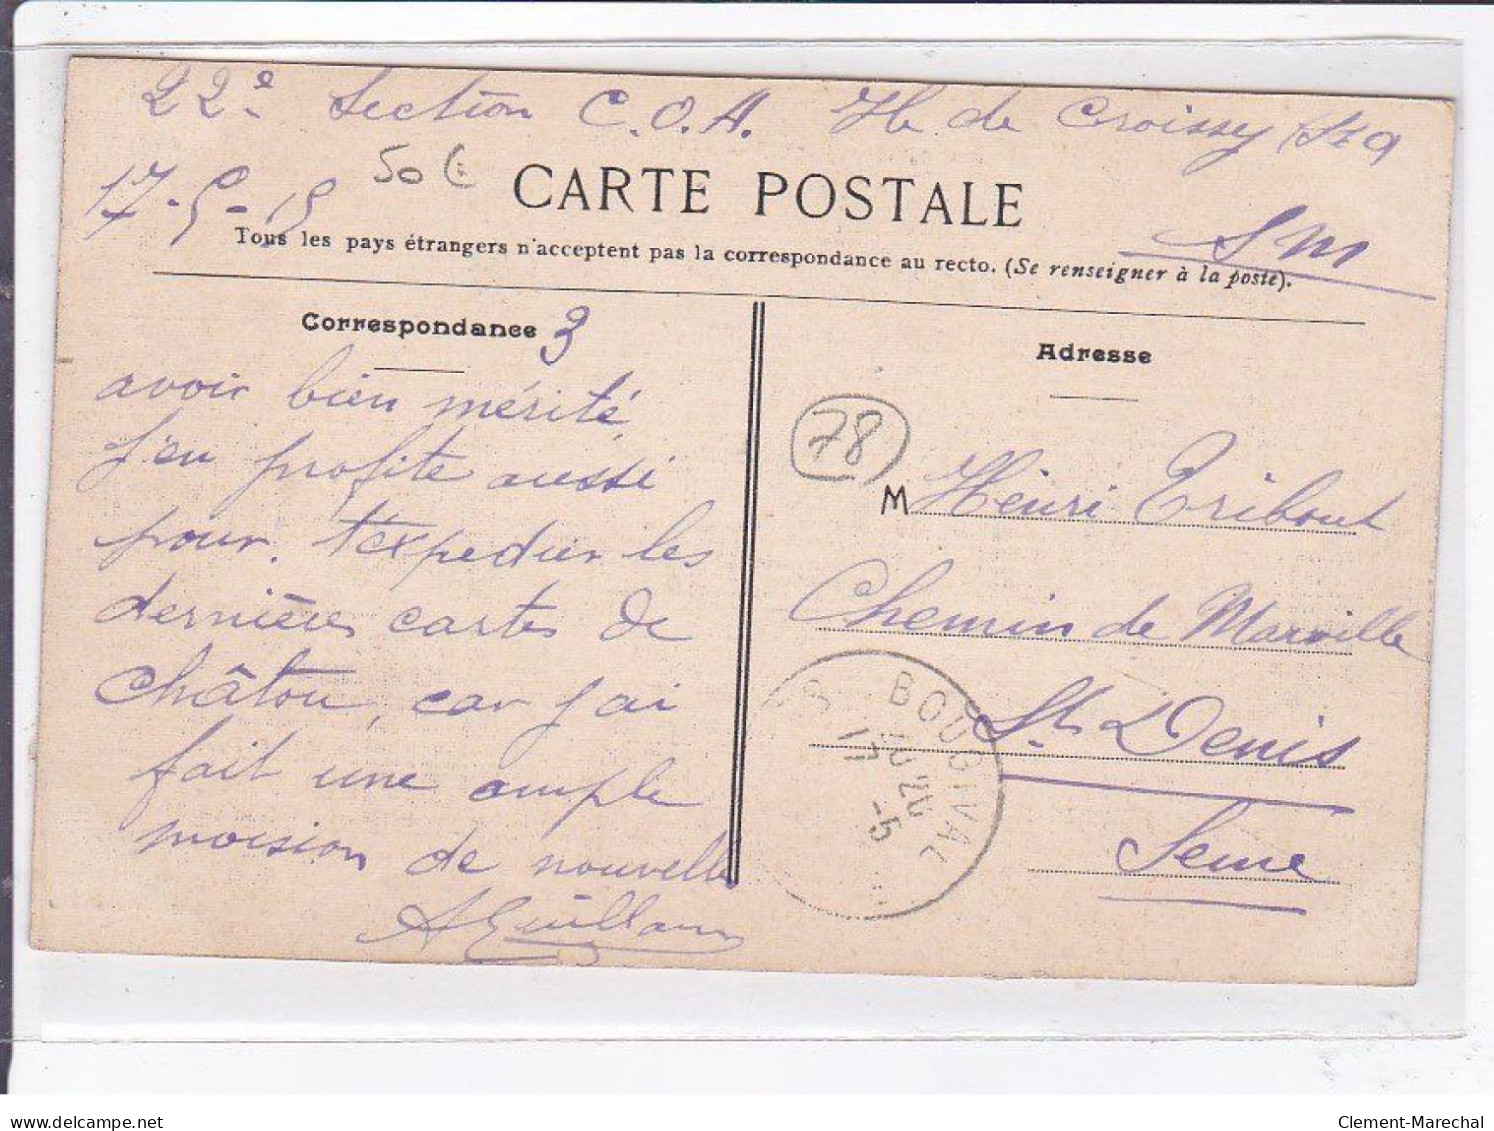 22e Section C.O.A. Ile de Croissy S&O
17-5-15
50 €
S M
CARTE POSTALE
Tous les pays étrangers n'acceptent pas la correspondance au recto. (Se renseigner à la poste).
Correspondance 3
avoir bien mérité,
j'en profite aussi
pour t'expedier les
dernières cartes de
Châtou, car j'ai
fait une ample
moision de nouvelle
AGuillaum
Adresse
78
M Henri Tribout
Chemin de Marville
St Denis
Seine
BOUGIVAL
17 -5
delcampe.net
Clement-Marechal